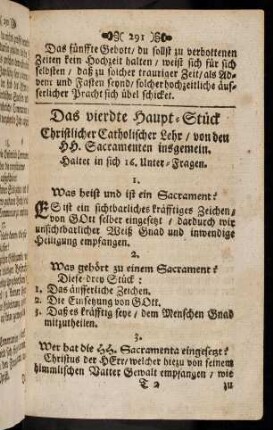 291
Das fünffte Gebott/ du sollst zu verbottenen
Zeiten kein Hochzeit halten/ weist sich für sich
selbsten/ daß zu solcher trauriger Zeit/ als Ad-
vent und Fasten seynd/ solcher hochzeitliche äus-
serlicher Pracht sich übel schicket.
Das vierdte Haupt-Stück
Christlicher Catholischer Lehr/ von den
HH. Sacramenten insgemein.
Haltet in sich 16. Unter-Fragen.
1.
Was heist und ist ein Sacrament?
ES ist ein sichtbarliches kräfftiges Zeichen/
von GOtt selber eingesetzt/ dardurch wir
unsichtbarlicher Weiß Gnad und inwendige
Heiligung empfangen.
2.
Was gehört zu einem Sacrament?
Diese drey Stück:
1. Das äusserliche Zeichen.
2. Die Einsetzung von GOtt.
3. Daß es kräfftig seye/ dem Menschen Gnad
mitzutheilen.
3.
Wer hat die HH. Sacramenta eingesetzt?
Christus der HErr/ welcher hiezu von seinem
himmlischen Vatter Gewalt empfangen/ wie
T 2 zu